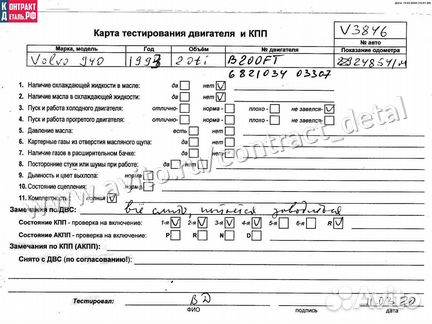 КОНТРАКТ
ДЕТАЛЬ.РФ
Карта тестирования двигателя и КПП
V3846
№ авто
Марка, модель Год Объём № двигателя Показание одометра
Volvo 940 1993 2.0ti B200FT
6821034 03307
1. Наличие охлаждающей жидкости в масле: да нет V
2. Наличие масла в охлаждающей жидкости: да нет V
3. Пуск и работа холодного двигателя: отлично- норма - плохо - не завелся- V
4. Пуск и работа прогретого двигателя: отлично- норма - плохо - не завелся-
5. Давление масла: есть нет
6. Картерные газы из отверстия масляного щупа: да нет
7. Наличие газов в расширительном бачке: да нет
8. Посторонние стуки или шумы при работе: да нет
9. Дымность и цвет выхлопа: норма
10. Состояние сцепления: норма
11. Комплектность: полная V
www.avito.ru/contract_detal
Замечания по ДВС: всё снято, заводиться
Состояние КПП - проверка на включение: 1-я V 2-я V 3-я V 4-я V 5-я V 6-я R V
Состояние АКПП - проверка на включение: P R N D
Замечания по КПП (АКПП):
Снято с ДВС (по согласованию!):
Тестировал: ВД
ФИО подпись дата
Avito